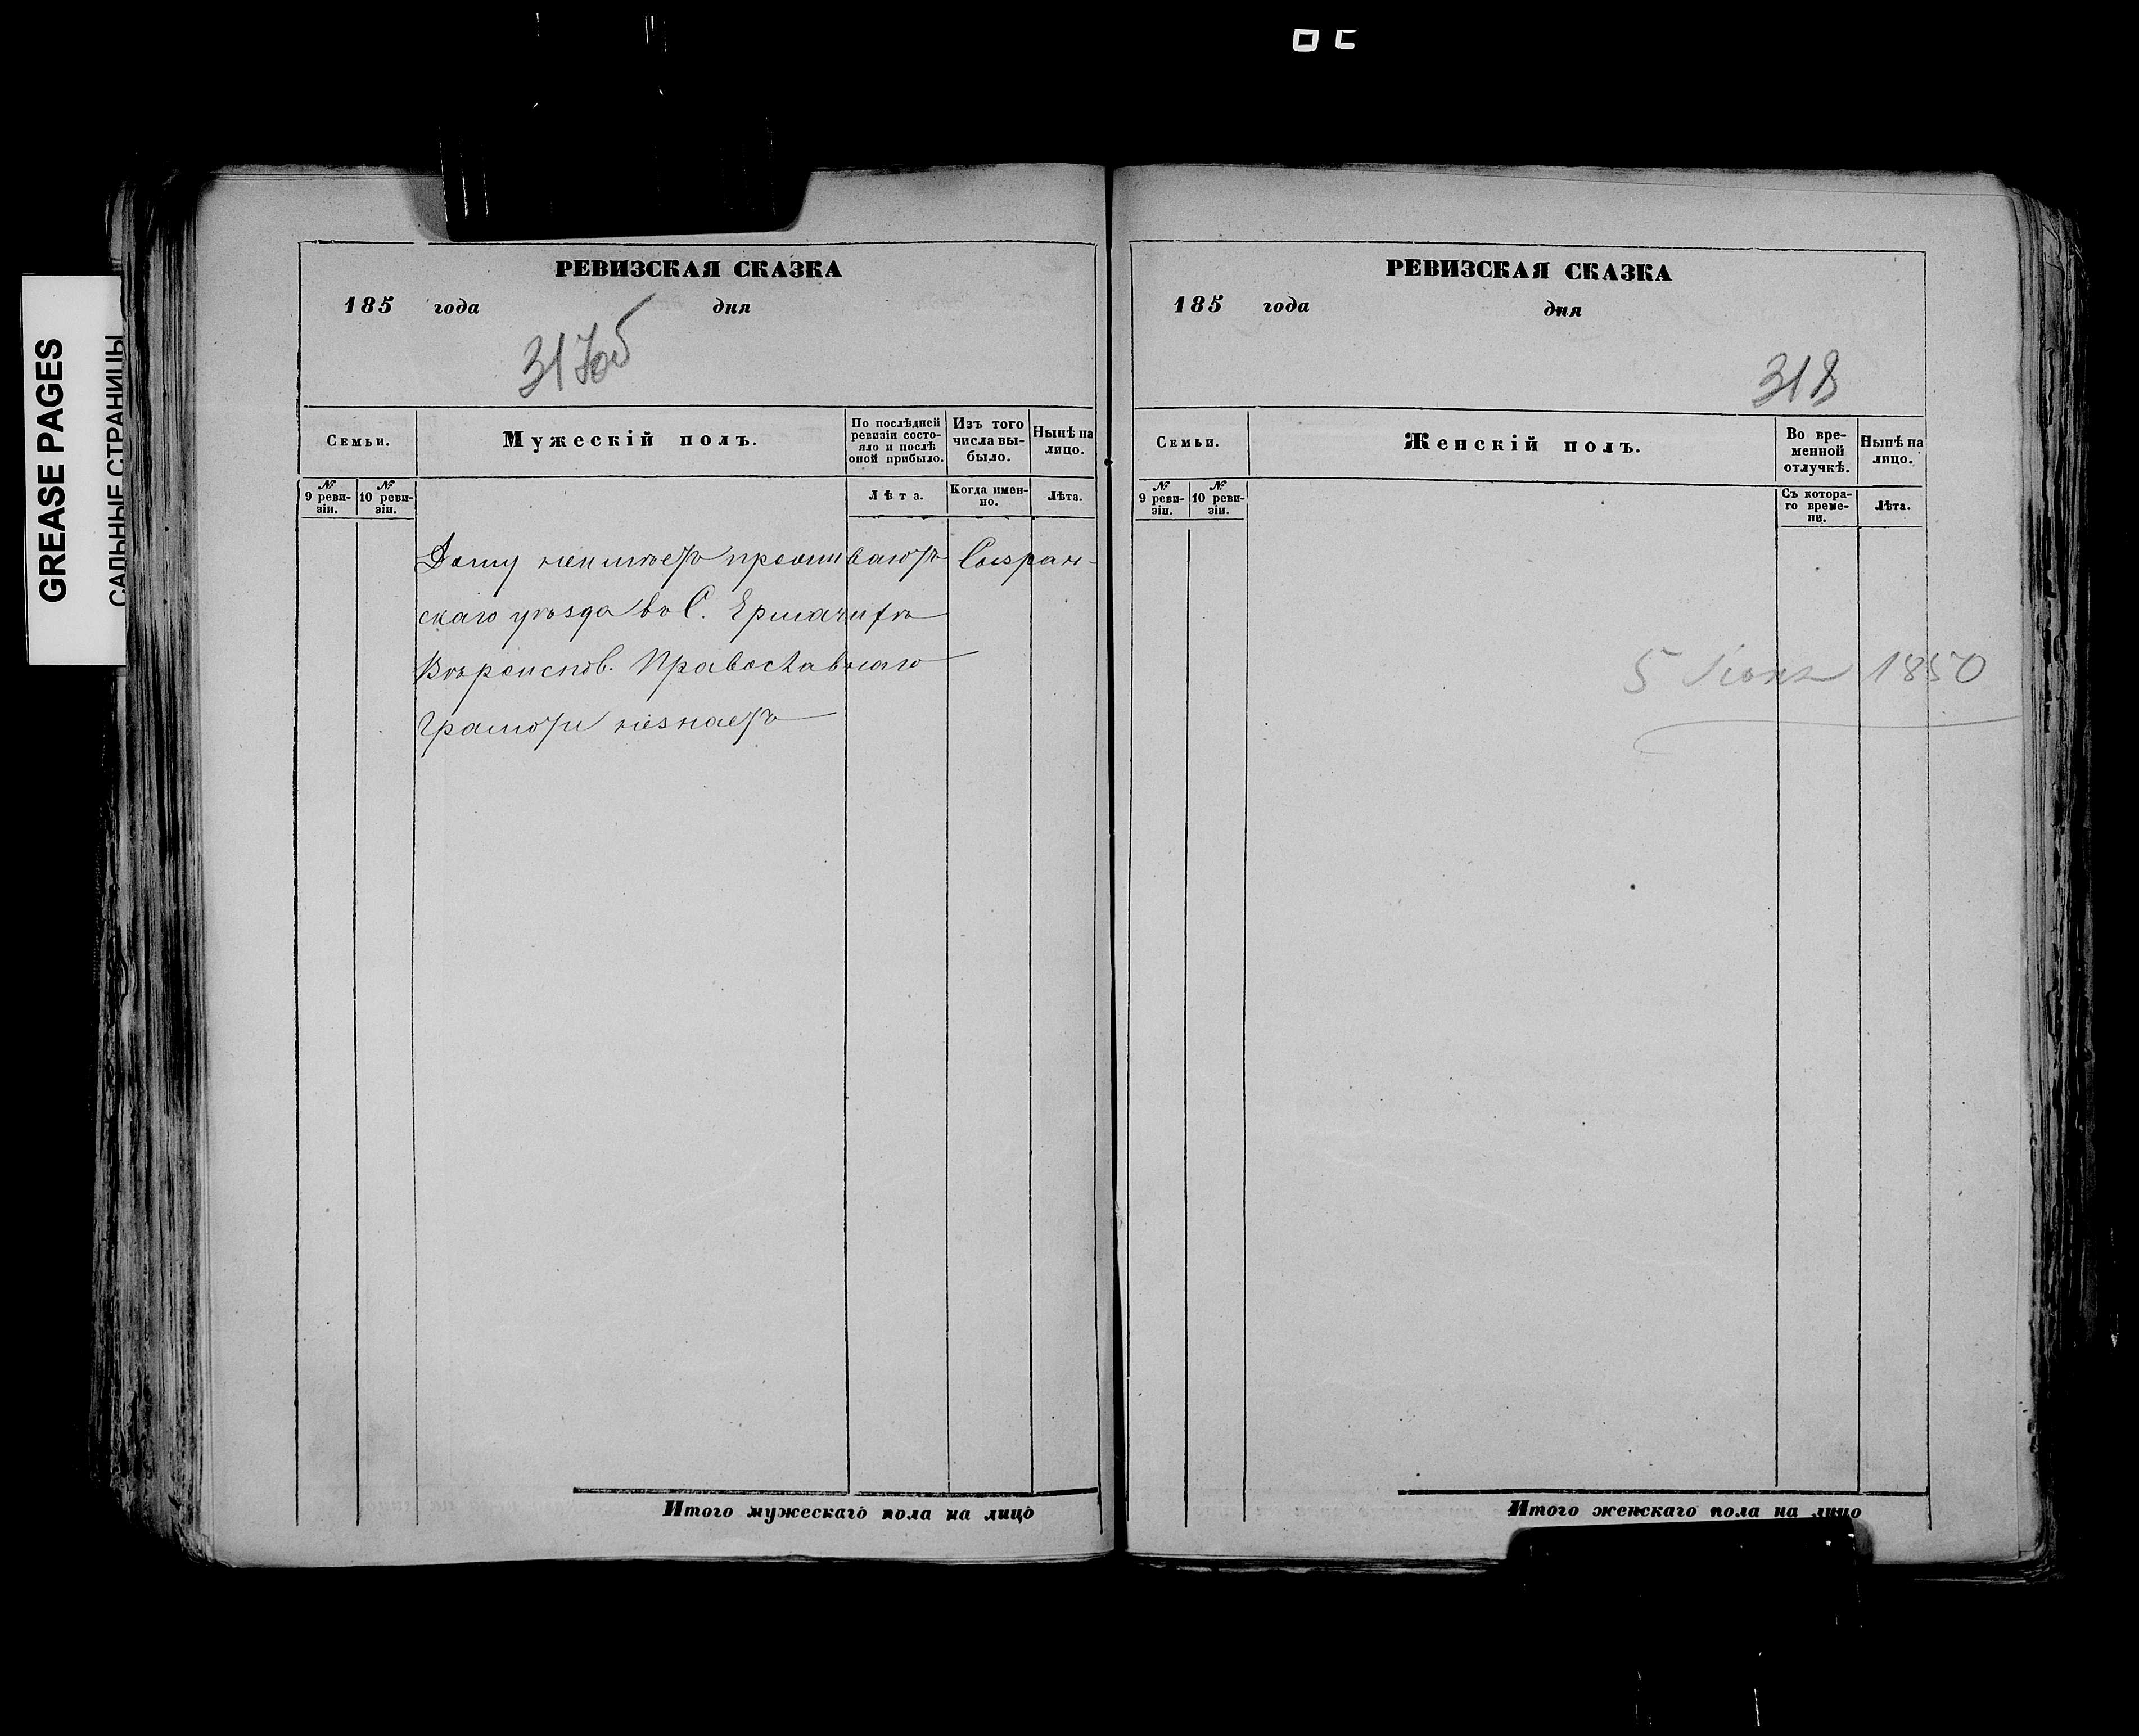 GREASE PAGES
САЛЬНЫЕ СТРАНИЦЫ
РЕВИЗСКАЯ СКАЗКА
185 года дня
317об
Семьи.
Мужескій полъ.
По послѣдней ревизіи состояло и послѣ оной прибыло.
Изъ того числа выбыло.
Нынѣ на лицо.
№ 9 ревизіи.
№ 10 ревизіи.
Лѣта.
Когда именно.
Лѣта.
Дому неимѣетъ проживаютъ Сызран-
скаго уѣзда въ С. Ермачихѣ
Вѣроисповъ. Православнаго
Грамоти незнаетъ
Итого мужескаго пола на лицо
РЕВИЗСКАЯ СКАЗКА
185 года дня
318
Семьи.
Женскій полъ.
Во временной отлучкѣ.
Нынѣ на лицо.
№ 9 ревизіи.
№ 10 ревизіи.
Съ котораго времени.
Лѣта.
5 1850
Итого женскаго пола на лицо